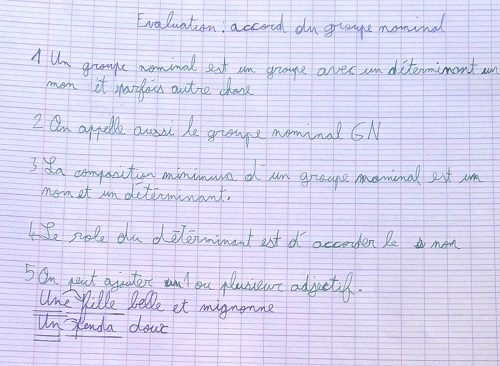 Evaluation : accord du groupe nominal
1 Un groupe nominal est un groupe avec un déterminant un
nom et parfois autre chose
2 On appelle aussi le groupe nominal GN
3 La composition minimum d'un groupe nominal est un
nom et un déterminant.
4 Le role du déterminant est d'accorder le non
5 On peut ajouter 1 ou plusieur adjectif.
Une fille belle et mignonne
Un penda doux